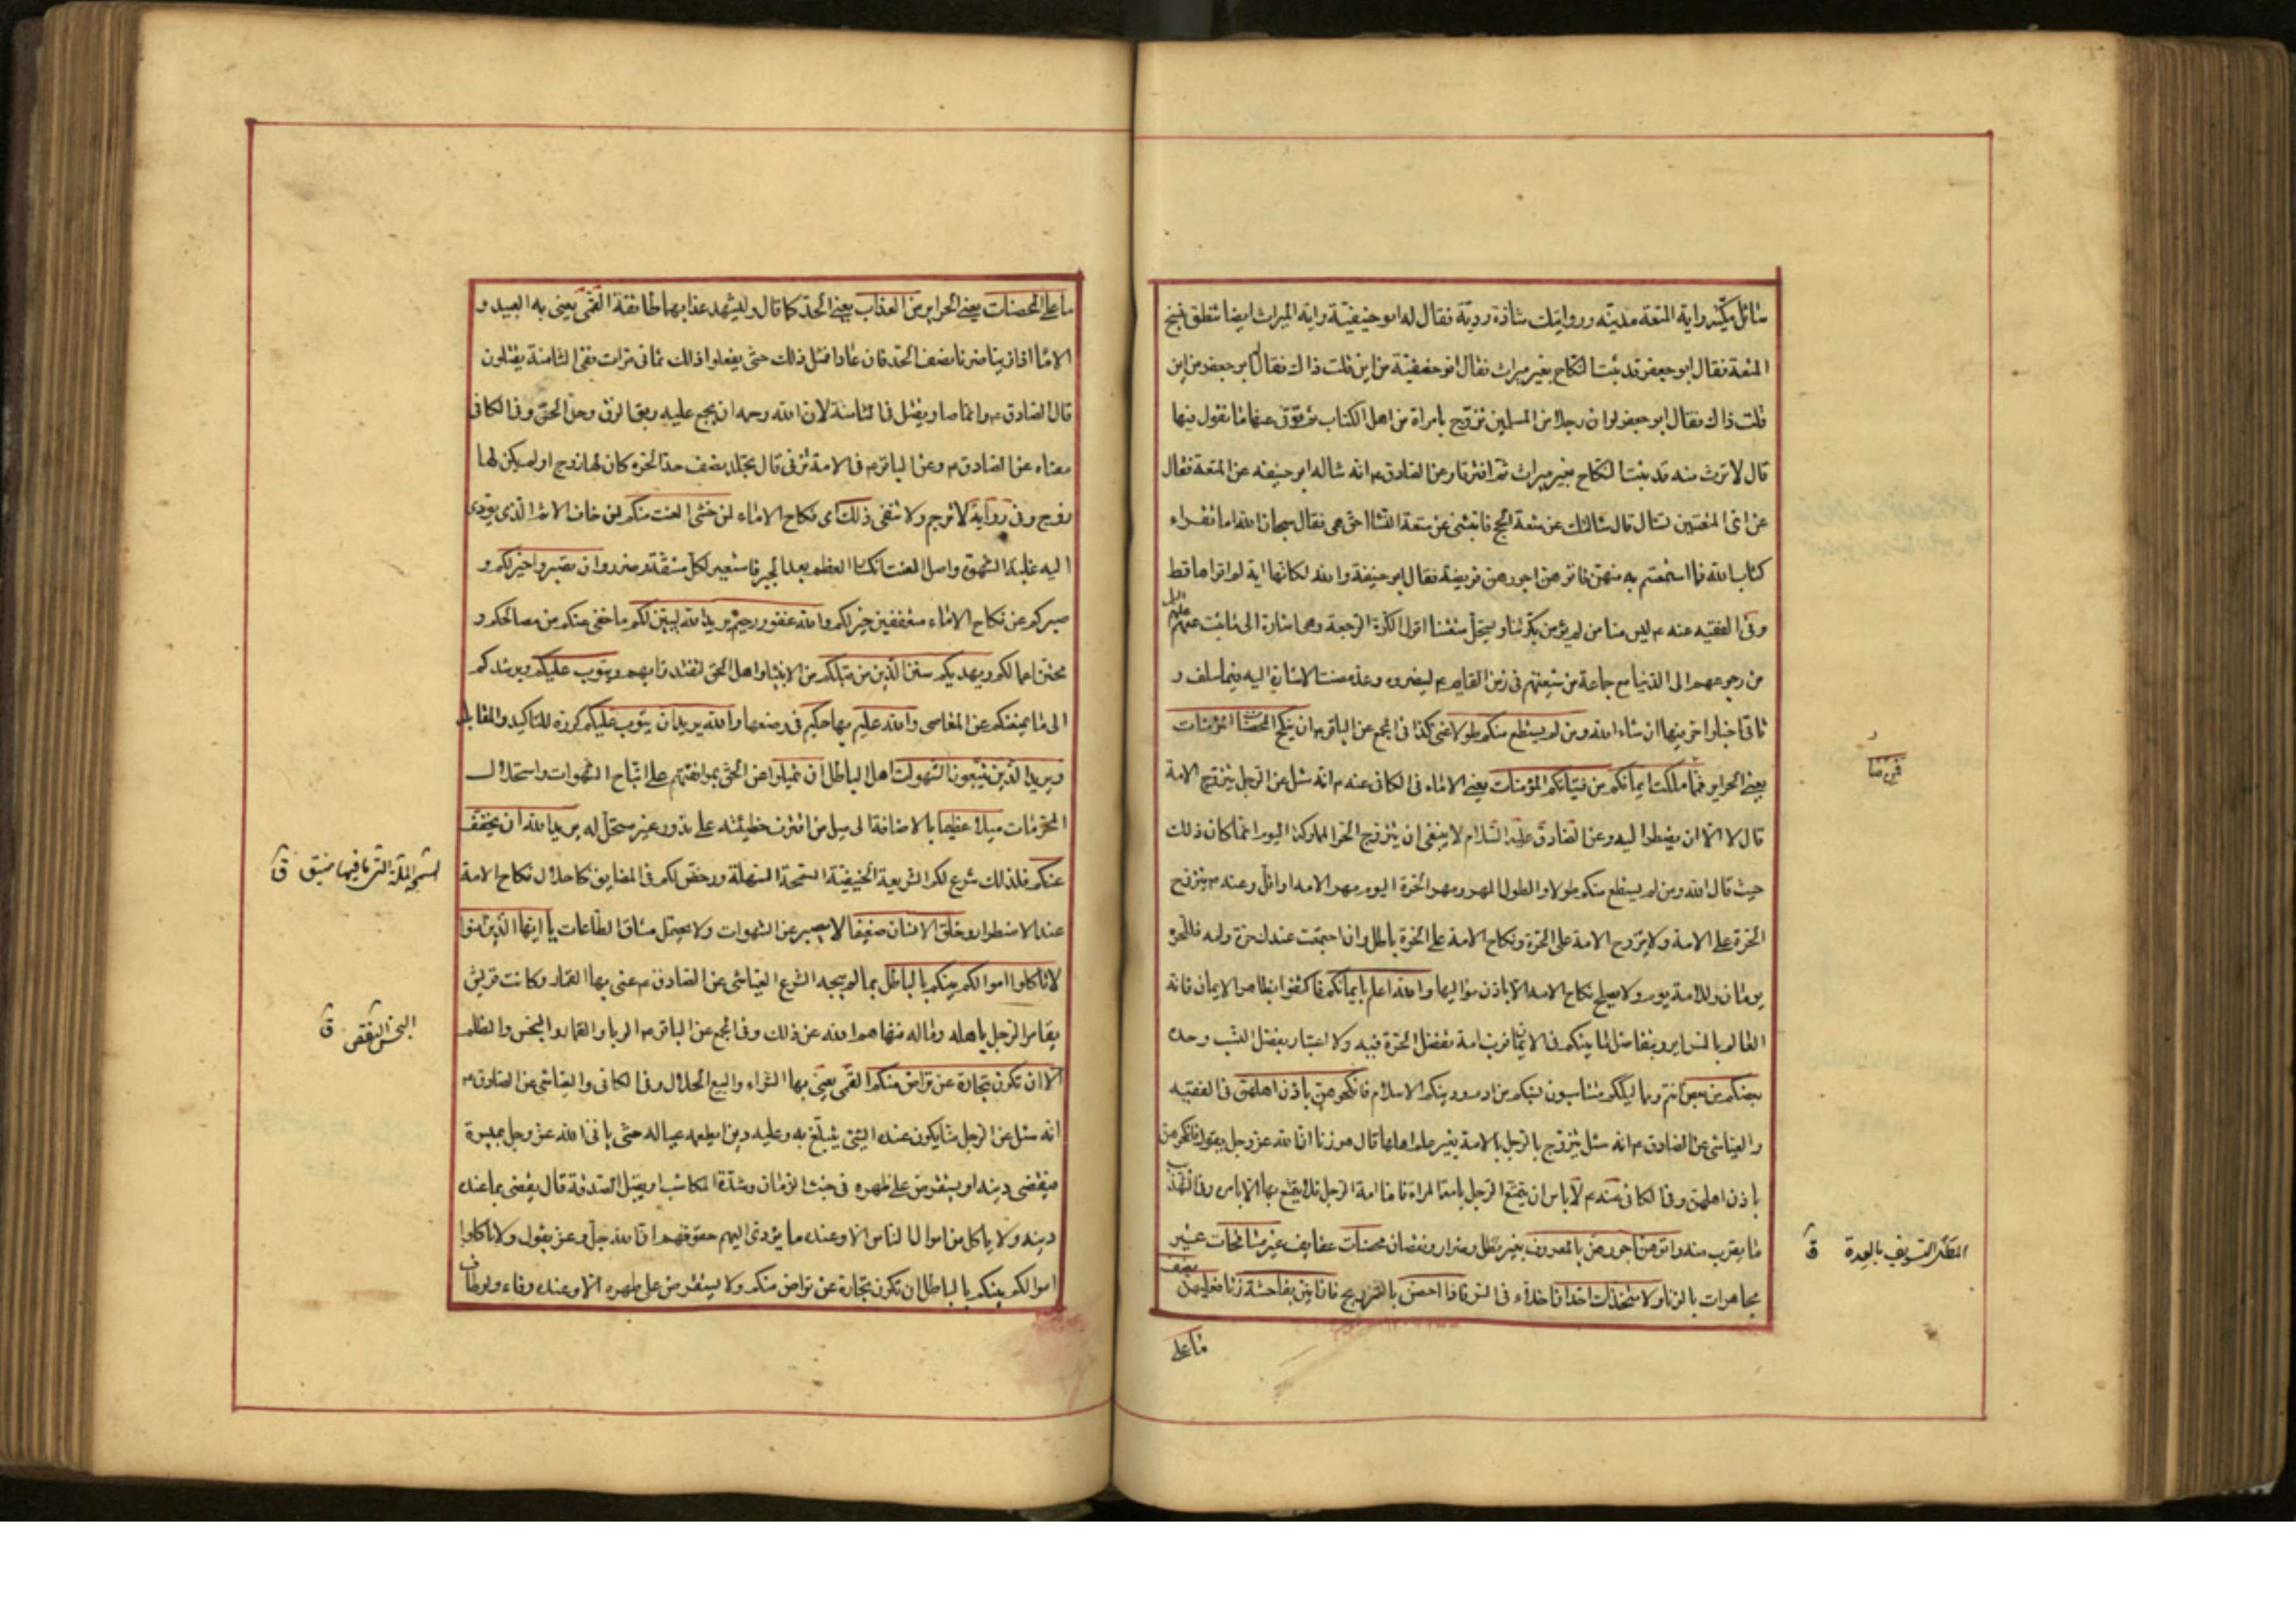 سائل مكيّة واية المتعة مدنيّة وروايتك شاذة رديّة فقال له ابو حنيفة واية الميراث ايضا تنطق بنسخ
المتعة فقال ابو جعفر قد ثبت النكاح بغير ميراث فقال ابو حنيفة من اين قلت ذاك فقال ابو جعفر
قلت ذاك فقال ابو جعفر لو ان رجلا من المسلمين تزوّج بامراة من اهل الكتاب ثم توفى عنها ما تقول فيها
قال لا ترث منه قد ثبت النكاح بغير ميراث ثم افترقا وعن الصادق ع انه ساله ابو حنيفه عن المتعة فقال
عن اى المتعتين تسال قال سالتك عن متعة الحج فانبئنى عن متعة النساء احق هى فقال سبحان الله اما تقراء
كتاب الله فما استمتعتم به منهن فاتوهن اجورهن فريضة فقال ابو حنيفة والله لكانها اية لم اقراها قط
وفى الفقيه عنه ع ليس منا من لم يؤمن بكرتنا ويستحل متعتنا اقول الكرة الرجعة وهى اشارة الى ما ثبت عنهم
من رجوعهم الى الدنيا مع جماعة من شيعتهم فى زمن القايم ع لينصروه وقد مضت الاشارة اليه فيما سلف و
ياتى اخبار اخر فيها ان شاء الله ومن لم يستطع منكم طولا غنى كذا فى المجمع عن الباقر ع ان ينكح المحصنات المؤمنات
يعنى الحراير فمما ملكت ايمانكم من فتياتكم المؤمنات يعنى الاماء فى الكافى عنه ع انه سئل عن الرجل يتزوج الامة
قال لا الا ان يضطر اليه وعن الصادق عليه السلام لا ينبغى ان يتزوج الحر المملوكة اليوم انما كان ذلك
حيث قال الله ومن لم يستطع منكم طولا والطول المهر ومهر الحرة اليوم مهر الامه او اقل وعنه ع يتزوج
الحرة على الامة ولا يتزوج الامة على الحرة ونكاح الامة على الحرة باطل وان اجتمعت عندك حرة وامه فللحرّة
يومان وللامة يوم ولا يصلح نكاح الامه الا باذن مواليها والله اعلم بايمانكم فاكتفوا بظاهر الايمان فانه
العالم بالسراير وبتفاضل ما بينكم فى الايمان فرب امة تفضل الحرة فيه ولا اعتبار بفضل النسب وحده
بعضكم من بعض انتم ومماليككم متناسبون نسبكم من ادم ودينكم الاسلام فانكحوهن باذن اهلهن فى الفقيه
والعياشى عن الصادق ع انه سئل يتزوج الرجل بالامة بغير علم اهلها قال هو زنا ان الله عز وجل يقول فانكحوهن
باذن اهلهن وفى الكافى عنه ع لا باس ان يتمتع الرجل بامة المراة فاما امة الرجل فلا يتمتع بها الا بامره وفى التهذيب
ما يقرب منه واتوهن اجورهن بالمعروف بغير مطل وضرار ونقصان محصنات عفايف غير مسافحات غير
مجاهرات بالزنا ولا متخذات اخدان اخلاء فى السر فاذا احصن بالتزويج فان اتين بفاحشة زنا فعليهن نصف
ما على
فتى ضا
المطل التسويف بالعدة ق
ما على المحصنات يعنى الحراير من العذاب يعنى الحد كما قال وليشهد عذابهما طائفة القمى يعنى به العبيد و
الاماء اذا زنيا ضربا نصف الحد فان عادا فمثل ذلك حتى يفعلوا ذلك ثمانى مرات ففى الثامنة يقتلون
قال الصادق ع وانما صار يقتل فى الثامنة لان الله رحمه ان يجمع عليه ربق الرق وحد الحر وفى الكافى
معناه عن الصادق ع وعن الباقر ع فى الامة تزنى قال تجلد نصف حد الحره كان لها زوج او لم يكن لها
زوج وفى رواية لا ترجم ولا تنفى ذلك اى نكاح الاماء لمن خشى العنت منكم لمن خاف الاثم الذى يؤدى
اليه غلبة الشهوة واصل العنت انكسار العظم بعد الجبر فاستعير لكل مشقة وضرر وان تصبروا خير لكم و
صبركم عن نكاح الاماء متعففين خير لكم والله غفور رحيم يريد الله ليبين لكم ما خفى عنكم من مصالحكم و
محاسن اعمالكم ويهديكم سنن الذين من قبلكم من الانبياء واهل الحق لتقتدوا بهم ويتوب عليكم ويرشدكم
الى ما يمنعكم عن المعاصى والله عليم بها حكيم فى وضعها والله يريد ان يتوب عليكم كرره للتاكيد والمقابلة
ويريد الذين يتبعون الشهوات اهل الباطل ان تميلوا عن الحق بموافقتهم على اتباع الشهوات واستحلال
المحرمات ميلا عظيما بالاضافة الى ميل من اقترف خطيئته على ندور غير مستحل له يريد الله ان يخفف
عنكم فلذلك شرع لكم الشريعة الحنيفية السمحة السهلة ورخص لكم فى المضايق كاحلال نكاح الامة
عند الاضطرار وخلق الانسان ضعيفا لا يصبر عن الشهوات ولا يحتمل مشاق الطاعات يا ايها الذين امنوا
لا تاكلوا اموالكم بينكم بالباطل بما لم يبحه الشرع العياشى عن الصادق ع عنى بها القمار وكانت قريش
يقامر الرجل باهله وماله فنهاهم الله عن ذلك وفى المجمع عن الباقر ع الربا والقمار والبخس والظلم
الا ان تكون تجارة عن تراض منكم القمى يعنى بها الشراء والبيع الحلال وفى الكافى والعياشى عن الصادق ع
انه سئل عن الرجل منا يكون عنده الشئ يتبلغ به وعليه دين ايطعمه عياله حتى ياتى الله عز وجل بميسرة
فيقضى دينه او يستقرض على ظهره فى خبث الزمان وشدة المكاسب او يقبل الصدقة قال يقضى بما عنده
دينه ولا ياكل من اموال الناس الا وعنده ما يؤدى اليهم حقوقهم ان الله جل وعز يقول ولا تاكلوا
اموالكم بينكم بالباطل الا ان تكون تجارة عن تراض منكم ولا يستقرض على ظهره الا وعنده وفاء ولو طاف
السمحة الملة التى ما فيها ضيق ق
البخس النقص ق